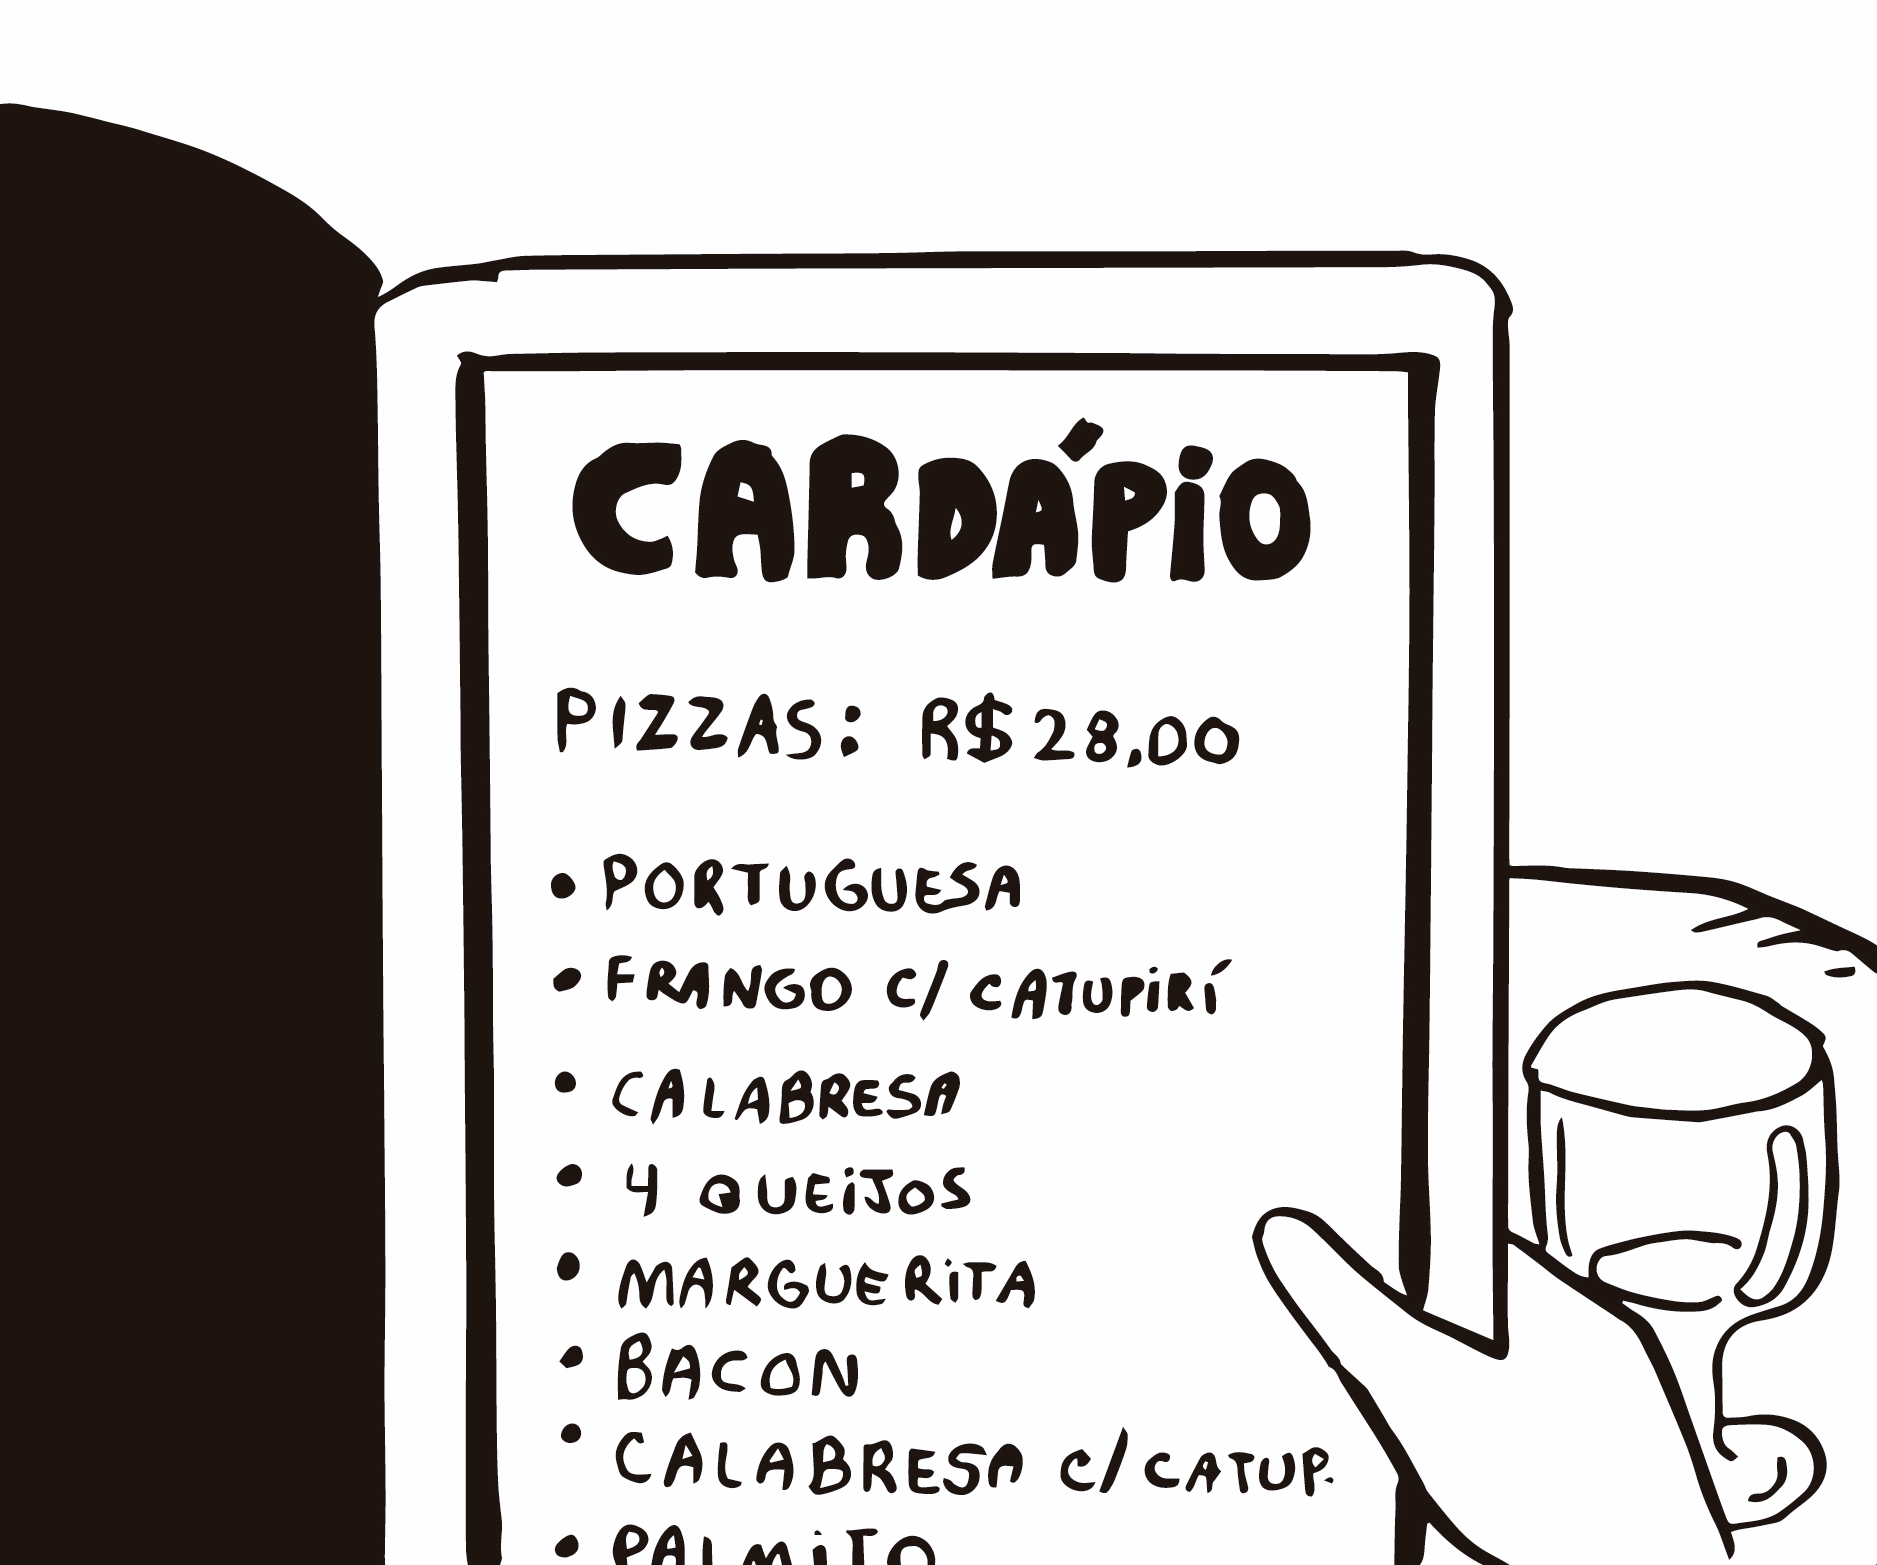 CARDÁPIO
PIZZAS: R$28,00
• PORTUGUESA
• FRANGO C/ CATUPIRÍ
• CALABRESA
• 4 QUEIJOS
• MARGUERITA
• BACON
• CALABRESA C/CATUP.
• PALMITO